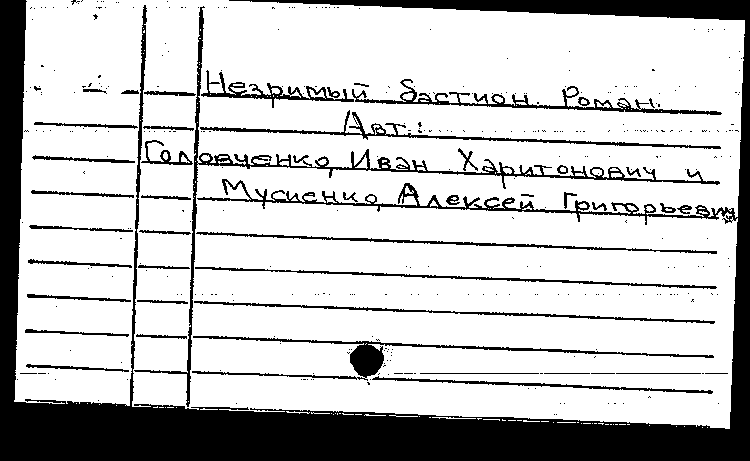 Незримый бастион. Роман.
Авт.:
Головченко, Иван Харитонович и
Мусиенко, Алексей Григорьевич